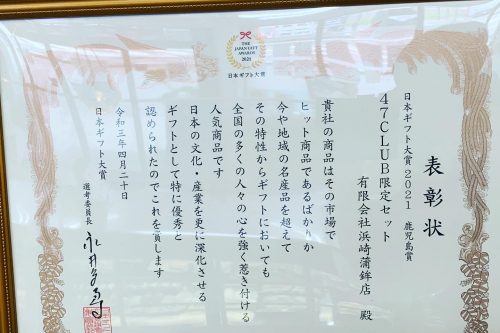 THE
JAPAN GIFT
AWARDS
2021
日本ギフト大賞
表彰状
日本ギフト大賞 2021 鹿児島賞
47CLUB限定セット
有限会社浜崎蒲鉾店 殿
貴社の商品はその市場で
ヒット商品であるばかりか
今や地域の名産品を超えて
その特性からギフトにおいても
全国の多くの人々の心を強く惹き付ける
人気商品です
日本の文化・産業を更に深化させる
ギフトとして特に優秀と
認められたのでこれを賞します
令和三年四月二十日
日本ギフト大賞
選考委員長